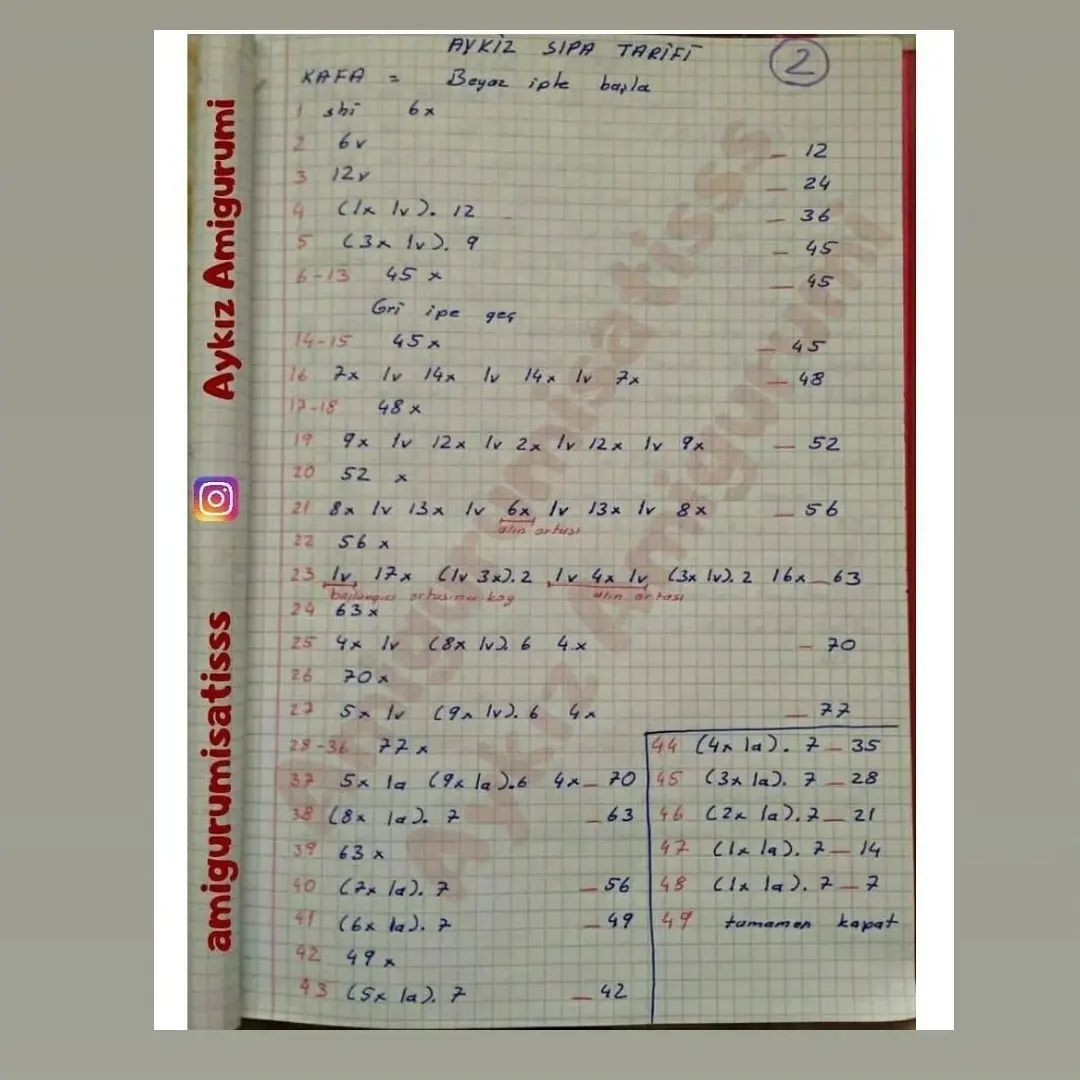 AYKIZ SIPA TARİFİ
2
KAFA = Beyaz iple başla
1 shi 6x
2 6v _ 12
3 12v _ 24
4 (1x 1v). 12 _ 36
5 (3x 1v). 9 _ 45
6-13 45 x _ 45
Gri ipe geç
14-15 45x _ 45
16 7x 1v 14x 1v 14x 1v 7x _ 48
17-18 48x
19 9x 1v 12x 1v 2x 1v 12x 1v 9x _ 52
20 52 x
21 8x 1v 13x 1v 6x 1v 13x 1v 8x _ 56
alın ortası
22 56 x
23 1v 17x (1v 3x). 2 1v 4x 1v (3x 1v). 2 16x _ 63
başlangıcı ortasına koy alın ortası
24 63x
25 4x 1v (8x 1v). 6 4x _ 70
26 70x
27 5x 1v (9x 1v). 6 4x _ 77
28-36 77x
37 5x 1a (9x 1a).6 4x _ 70
38 (8x 1a). 7 _ 63
39 63x
40 (7x 1a). 7 _ 56
41 (6x 1a). 7 _ 49
42 49x
43 (5x 1a). 7 _ 42
44 (4x 1a). 7 _ 35
45 (3x 1a). 7 _ 28
46 (2x 1a). 7 _ 21
47 (1x 1a). 7 _ 14
48 (1x 1a). 7 _ 7
49 tamamen kapat
amigurumisatisss Aykız Amigurumi
Amigurumisatisss
Aykız Amigurumi